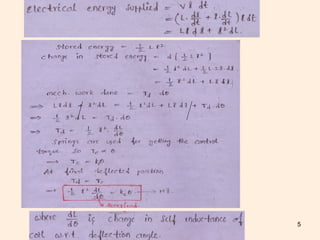 electrical energy supplied = Vi dt.
= (L. di/dt + i. dL/dt) i dt
= Li di + i² dL.
stored energy = 1/2 L i².
change in stored energy = d (1/2 L i²)
= 1/2 i² dL + 1/2 L. 2i. di.
= 1/2 i² dL + Li di.
mech. work done = Td. dθ
⇒ Li di + i² dL = 1/2 i² dL + Li di + Td. dθ
⇒ 1/2 i² dL = Td. dθ
⇒ Td = 1/2 i². dL/dθ
springs are used for getting the control
torque. So Tc ∝ θ
⇒ Tc = kθ
At final deflected position
Td = Tc
⇒ 1/2 i² dL/dθ = kθ → M.I.
where dL/dθ is change in self inductance of
coil w.r.t. deflection angle.
5